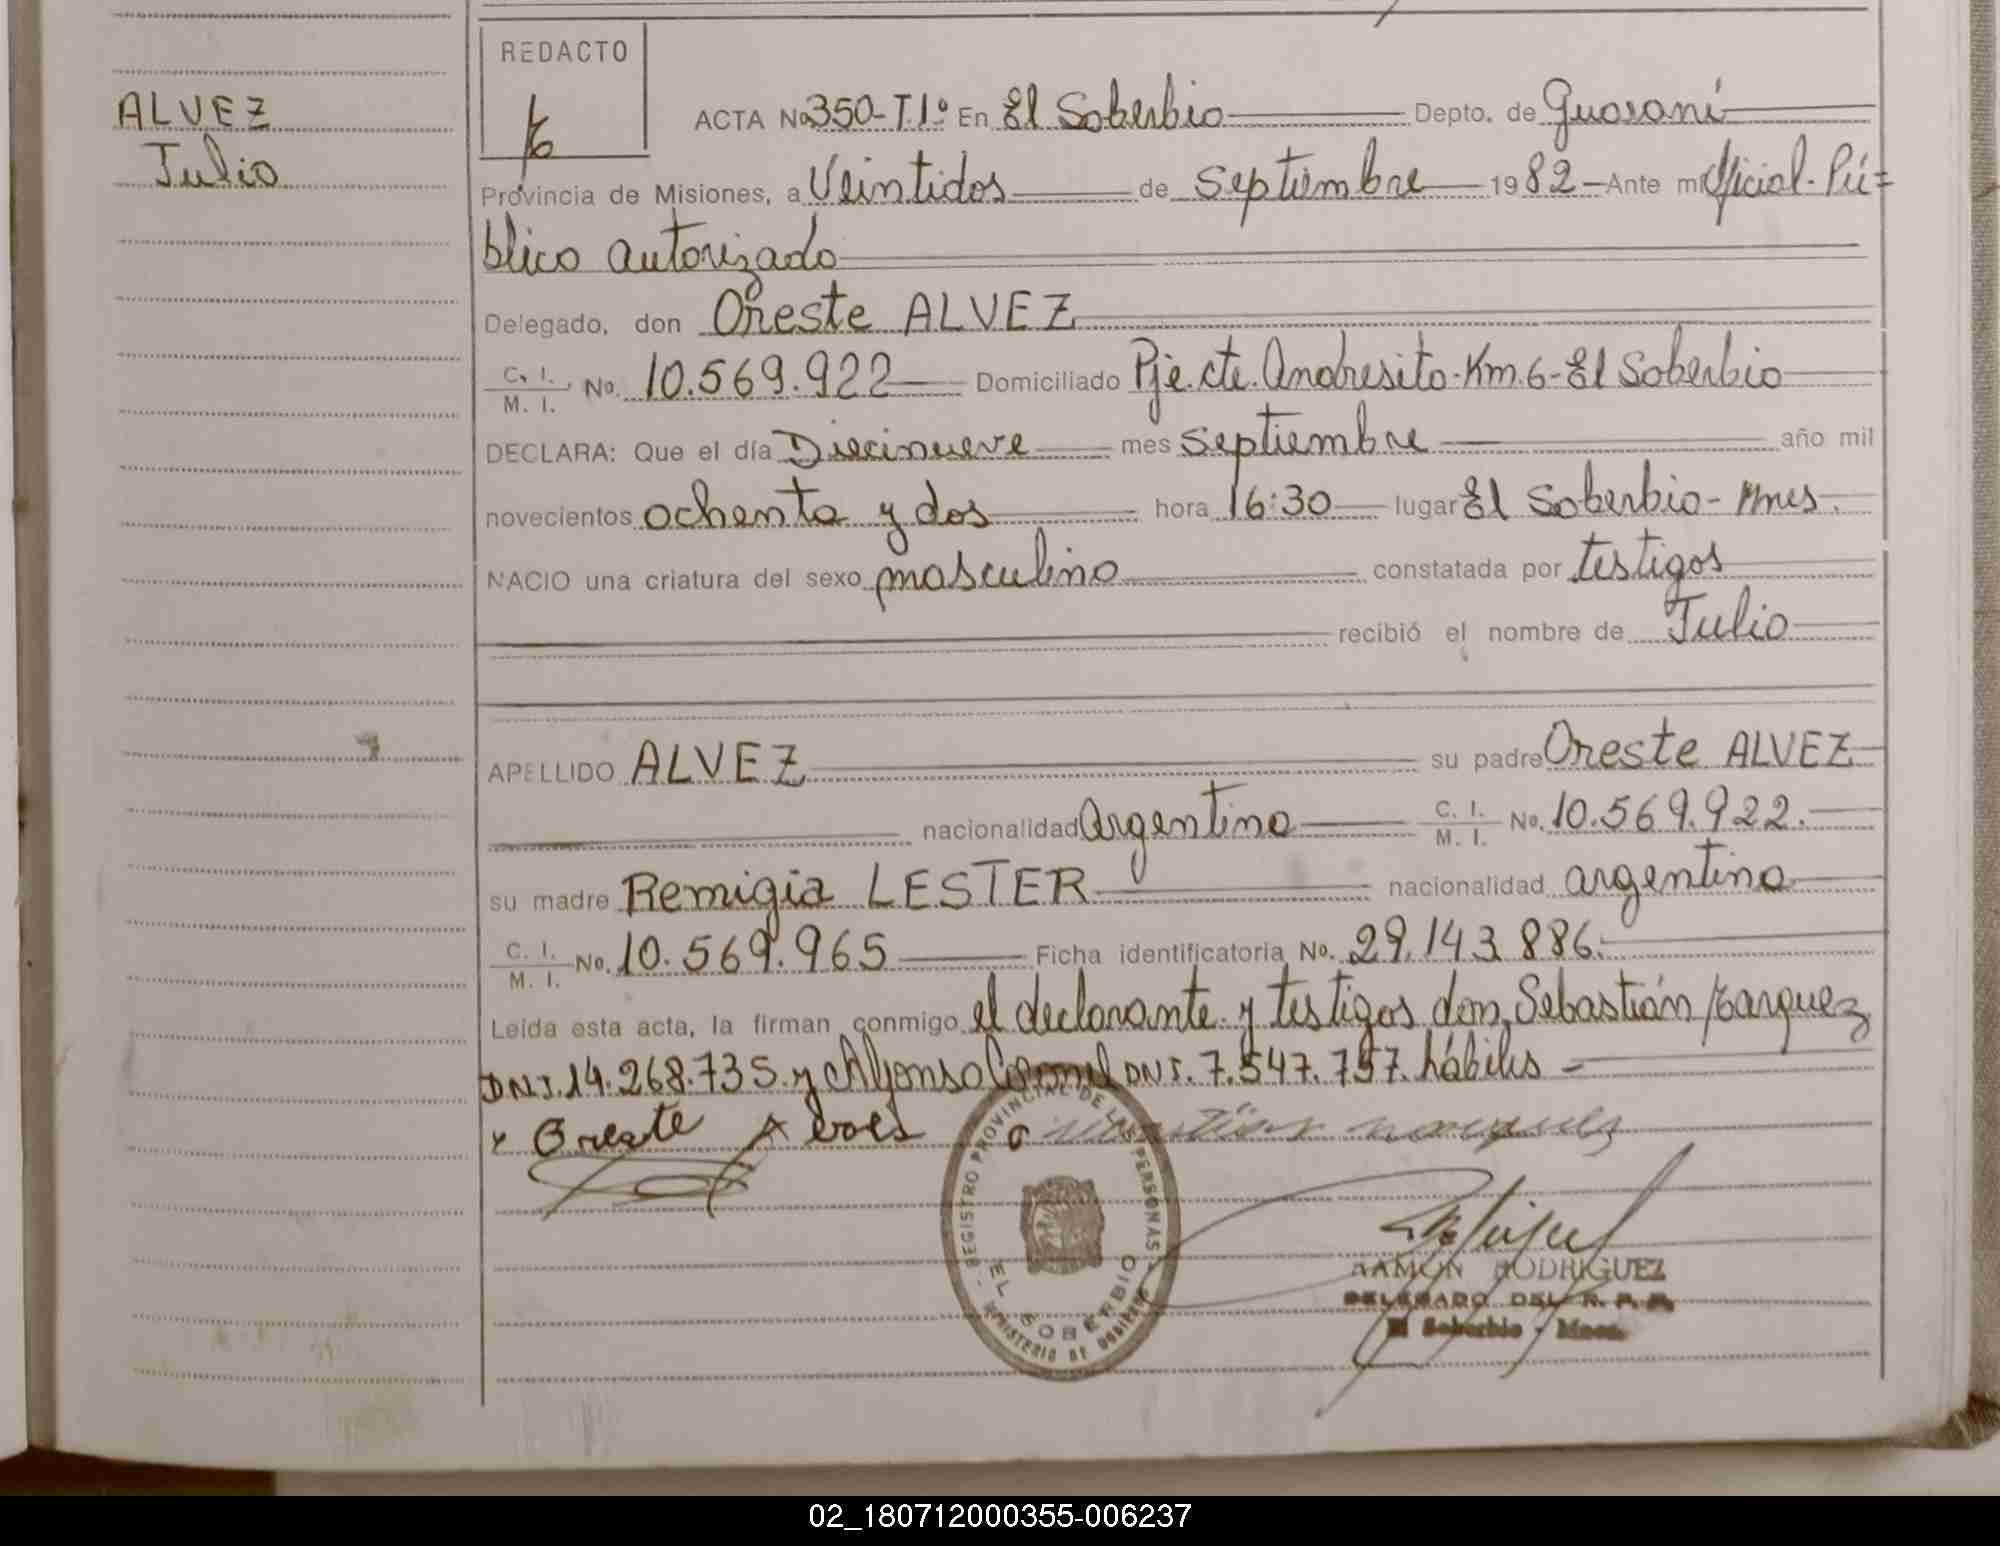 ALVEZ
Julio
REDACTO
ACTA No 350-T.1º En El Soberbio Depto. de Guaraní
Provincia de Misiones, a Veintidos de septiembre 1982 Ante mi Oficial Pú=
blico autorizado
Delegado, don Oreste ALVEZ
C. I. / M. I. No. 10.569.922 Domiciliado Pje. cte. Andresito-Km.6-El Soberbio
DECLARA: Que el día Diecinueve mes septiembre año mil
novecientos ochenta y dos hora 16:30 lugar El Soberbio-Mnes.
NACIO una criatura del sexo masculino constatada por testigos
recibió el nombre de Julio
APELLIDO ALVEZ su padre Oreste ALVEZ
nacionalidad Argentino C. I. / M. I. No. 10.569.922.
su madre Remigia LESTER nacionalidad argentina
C. I. / M. I. No. 10.569.965 Ficha identificatoria No. 29.143.886.
Leida esta acta, la firman conmigo el declarante y testigos don Sebastián Marquez
DNI. 14.268.735 y Alfonso Coronel DNI. 7.547.757. hábiles
x Oreste Alves
REGISTRO PROVINCIAL DE LAS PERSONAS
EL SOBERBIO
MINISTERIO DE GOBIERNO
RAMON RODRIGUEZ
DELEGADO DEL R. P. P.
El Soberbio - Mnes.
02_180712000355-006237